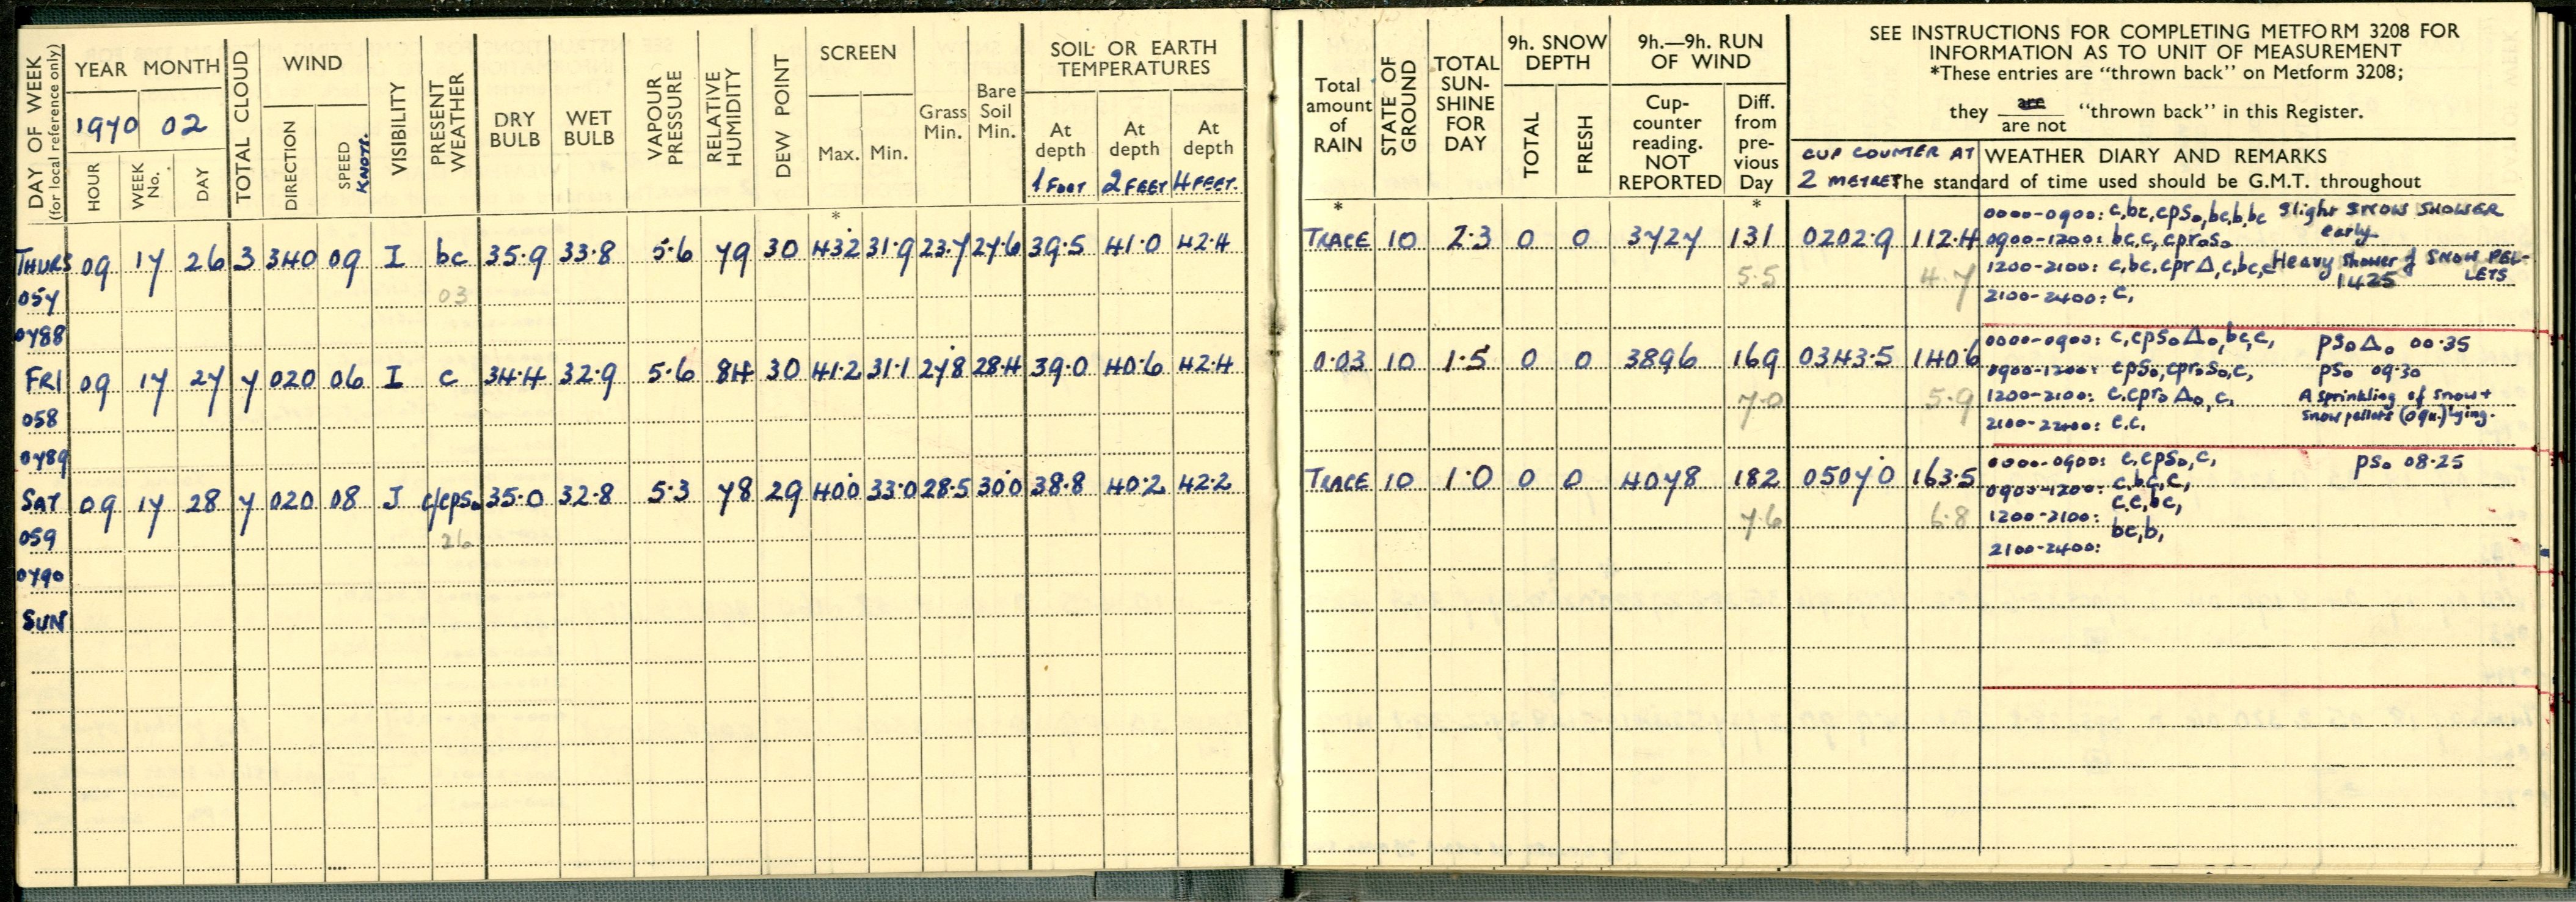 DAY OF WEEK
(for local reference only)
YEAR MONTH
1970 02
HOUR
WEEK No.
DAY
TOTAL CLOUD
WIND
DIRECTION
SPEED KNOTS.
VISIBILITY
PRESENT WEATHER
DRY BULB
WET BULB
VAPOUR PRESSURE
RELATIVE HUMIDITY
DEW POINT
SCREEN
Max. Min.
Grass Min.
Bare Soil Min.
SOIL OR EARTH TEMPERATURES
At depth 1 FOOT
At depth 2 FEET
At depth 4 FEET.
Total amount of RAIN
STATE OF GROUND
TOTAL SUN-SHINE FOR DAY
9h. SNOW DEPTH
TOTAL
FRESH
9h.—9h. RUN OF WIND
Cup-counter reading. NOT REPORTED
Diff. from pre-vious Day
SEE INSTRUCTIONS FOR COMPLETING METFORM 3208 FOR
INFORMATION AS TO UNIT OF MEASUREMENT
*These entries are "thrown back" on Metform 3208;
they are / are not "thrown back" in this Register.
CUP COUNTER AT 2 METRES
WEATHER DIARY AND REMARKS
The standard of time used should be G.M.T. throughout
* * *
THURS 09 17 26 3 340 09 I bc 35.9 33.8 5.6 79 30 43.2 31.9 23.7 27.6 39.5 41.0 42.4 TRACE 10 2.3 0 0 3727 131 0202.9 112.4
057 03 5.5 4.7
0000-0900: c,bc,cpso,bc,b,bc Slight SNOW SHOWER early
0900-1200: bc,c,cproso
1200-2100: c,bc,cpr△,c,bc,c Heavy Shower of SNOW PELLETS 1425
2100-2400: c,
0788
FRI 09 17 27 7 020 06 I c 34.4 32.9 5.6 84 30 41.2 31.1 27.8 28.4 39.0 40.6 42.4 0.03 10 1.5 0 0 3896 169 0343.5 140.6
058 7.0 5.9
0000-0900: c,cpso△o,bc,c, pso△o 00.35
0900-1200: cpso,cproso,c, pso 09.30
1200-2100: c.cpro△o,c, A sprinkling of snow +
2100-2400: c.c. snow pellets (09h.) lying.
0789
SAT 09 17 28 7 020 08 I c/cpso 35.0 32.8 5.3 78 29 40.0 33.0 28.5 30.0 38.8 40.2 42.2 TRACE 10 1.0 0 0 4078 182 0507.0 163.5
059 26 7.6 6.8
0000-0900: c,cpso,c, pso 08.25
0900-1200: c.bc,c,
1200-2100: c.c,bc,
2100-2400: bc,b,
0790
SUN